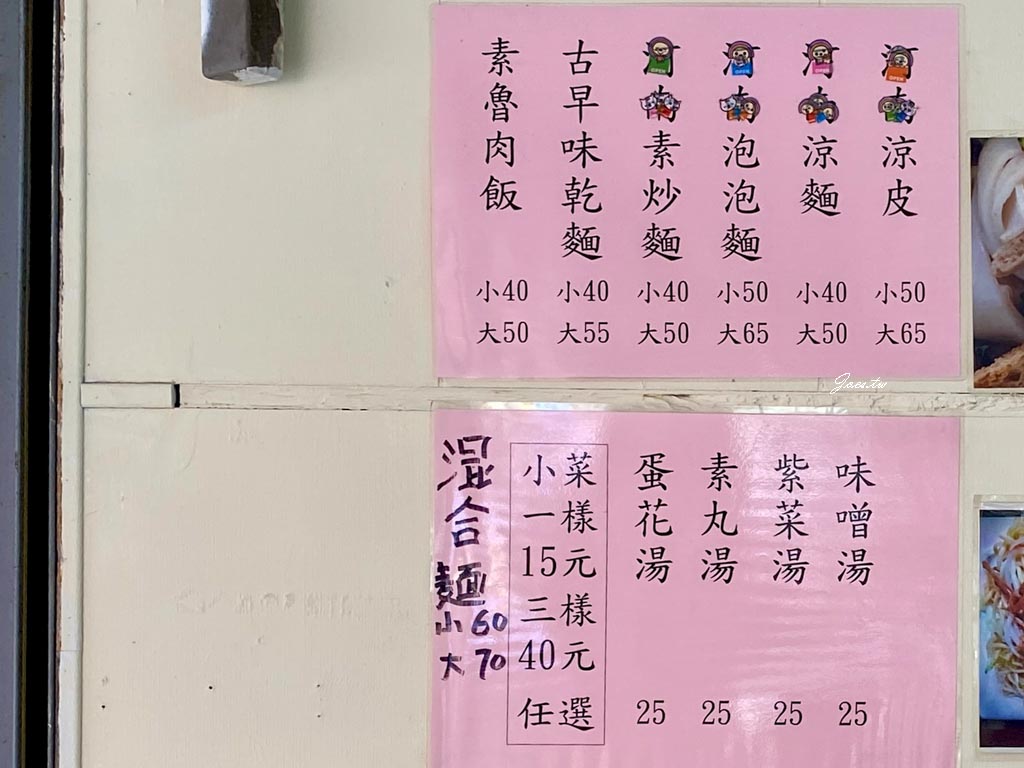 涼皮
小50
大65
涼麵
小40
大50
泡泡麵
小50
大65
素炒麵
小40
大50
古早味乾麵
小40
大55
素魯肉飯
小40
大50
Joes.tw
味噌湯
25
紫菜湯
25
素丸湯
25
蛋花湯
25
小菜
一樣
15元
三樣
40元
任選
混合麵
小60
大70